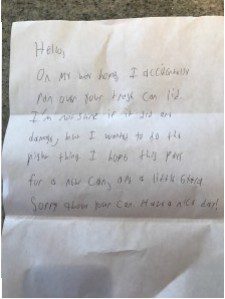 Hello,
On my way home I accidentally
ran over your trash can lid.
I'm not sure if it did any
damage, but I wanted to do the
right thing I hope this pays
for a new can, and a little extra
Sorry about your can. Have a nice day!